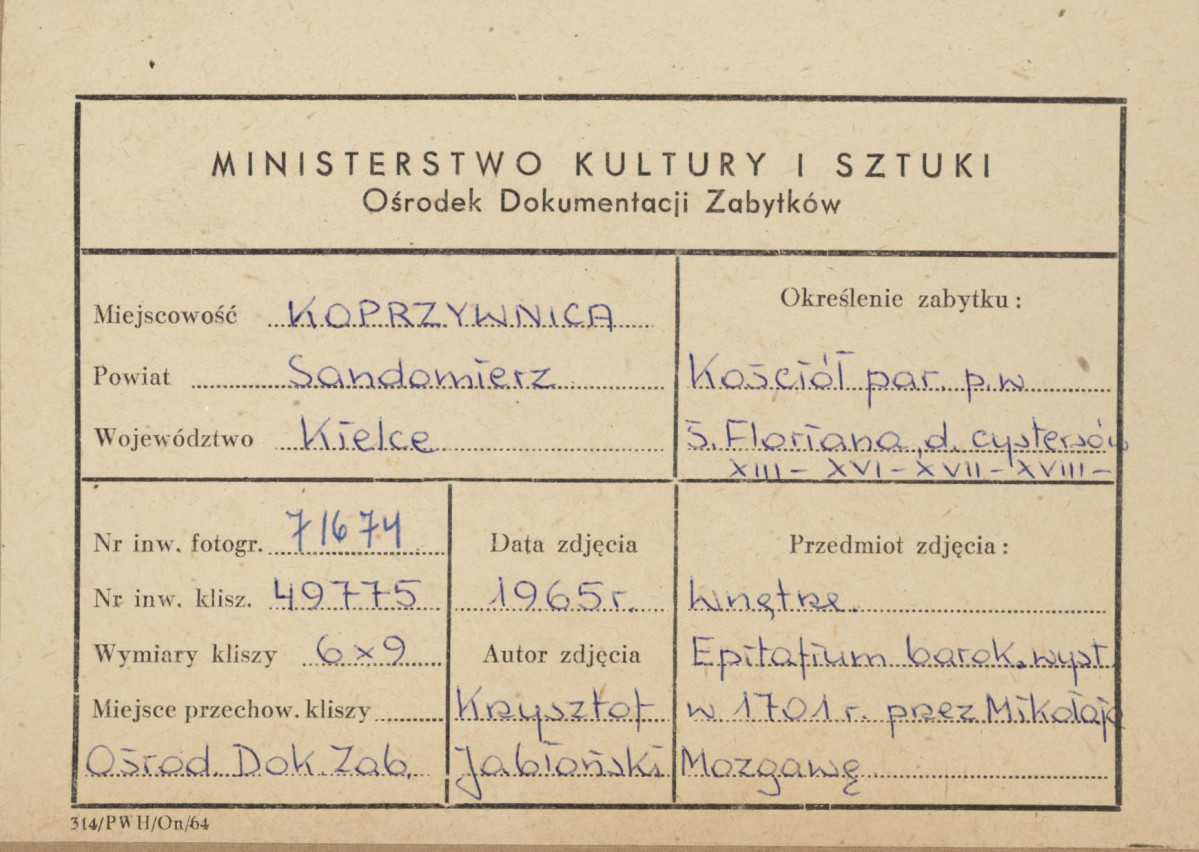 MINISTERSTWO KULTURY I SZTUKI
Ośrodek Dokumentacji Zabytków
Miejscowość KOPRZYWNICA
Powiat Sandomierz
Województwo Kielce
Określenie zabytku:
Kościół par. p.w
ś. Floriana, d. cystersów
XIII - XVI - XVII - XVIII -
Nr inw. fotogr. 71674
Nr inw. klisz. 49775
Wymiary kliszy 6x9
Miejsce przechow. kliszy
Ośrod. Dok. Zab.
Data zdjęcia
1965 r.
Autor zdjęcia
Krzysztof
Jabłoński
Przedmiot zdjęcia:
Wnętrze.
Epitafium barok. wyst.
w 1701 r. przez Mikołaja
Mozgawę.
314/PWH/On/64